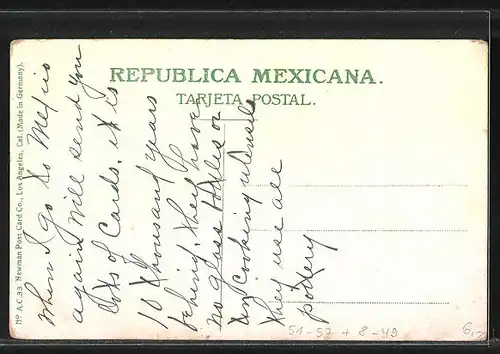 REPUBLICA MEXICANA.
TARJETA POSTAL.
No A.C.33 Newman Post Card Co., Los Angeles, Cal. (Made in Germany).
When I go to Mexico
again will send you
lots of Cards. it is
10 thousand years
behind. they have
no glass bottles or
any cooking utensils
they use all
pottery
51-57 + 8-49
6,-